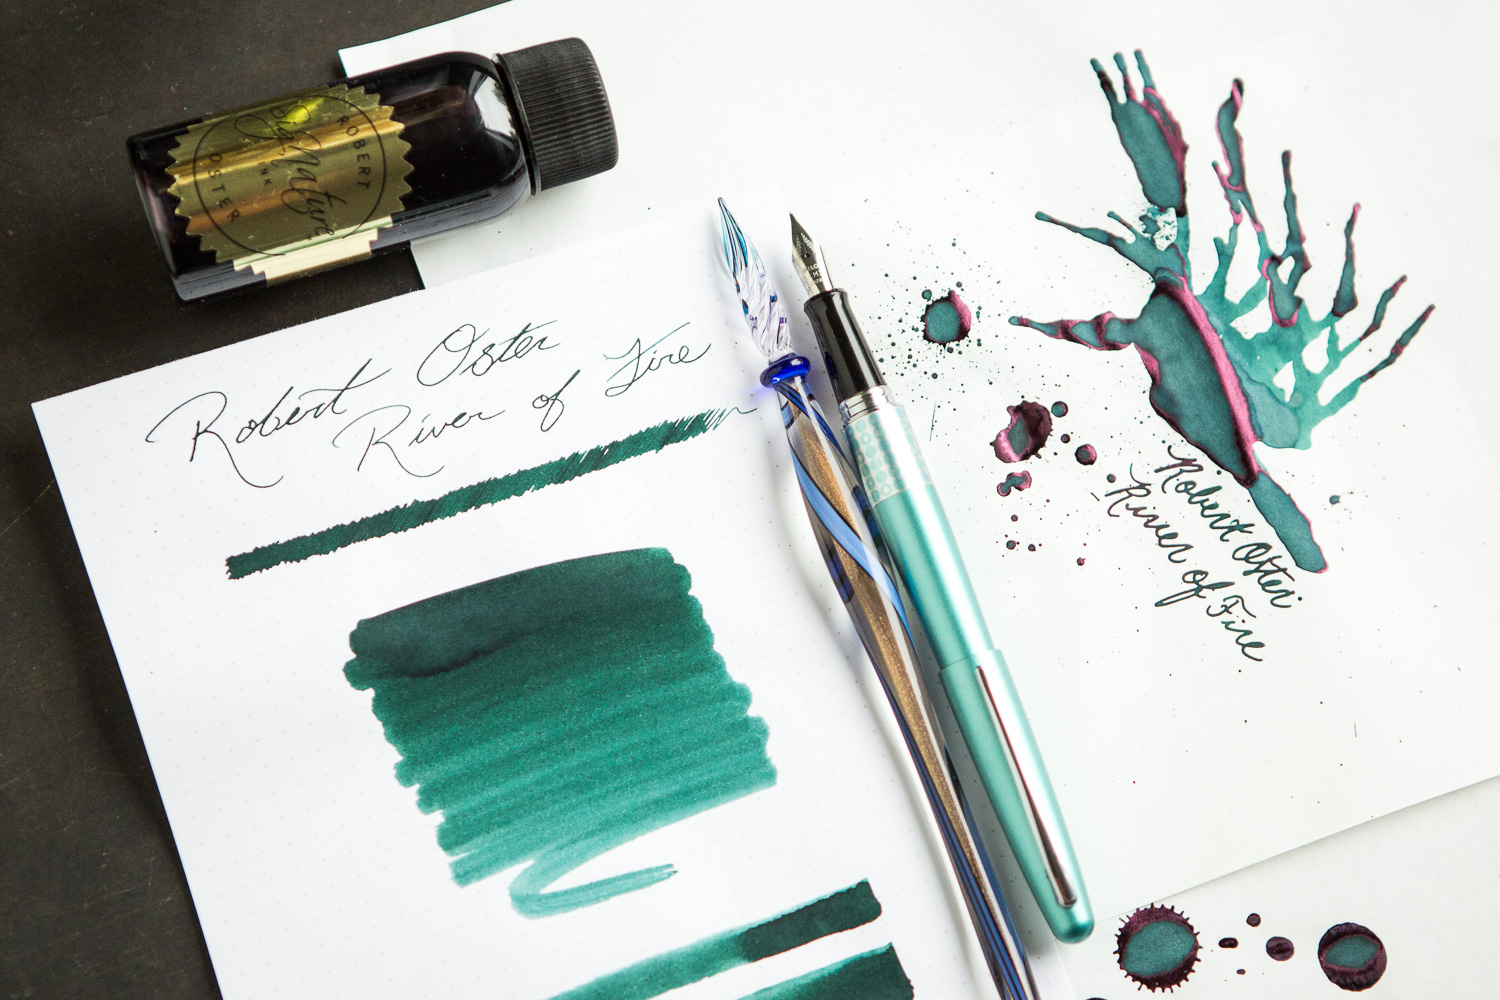 ROBERT OSTER
Signature
INK
Robert Oster
River of Fire
Robert Oster
River of Fire